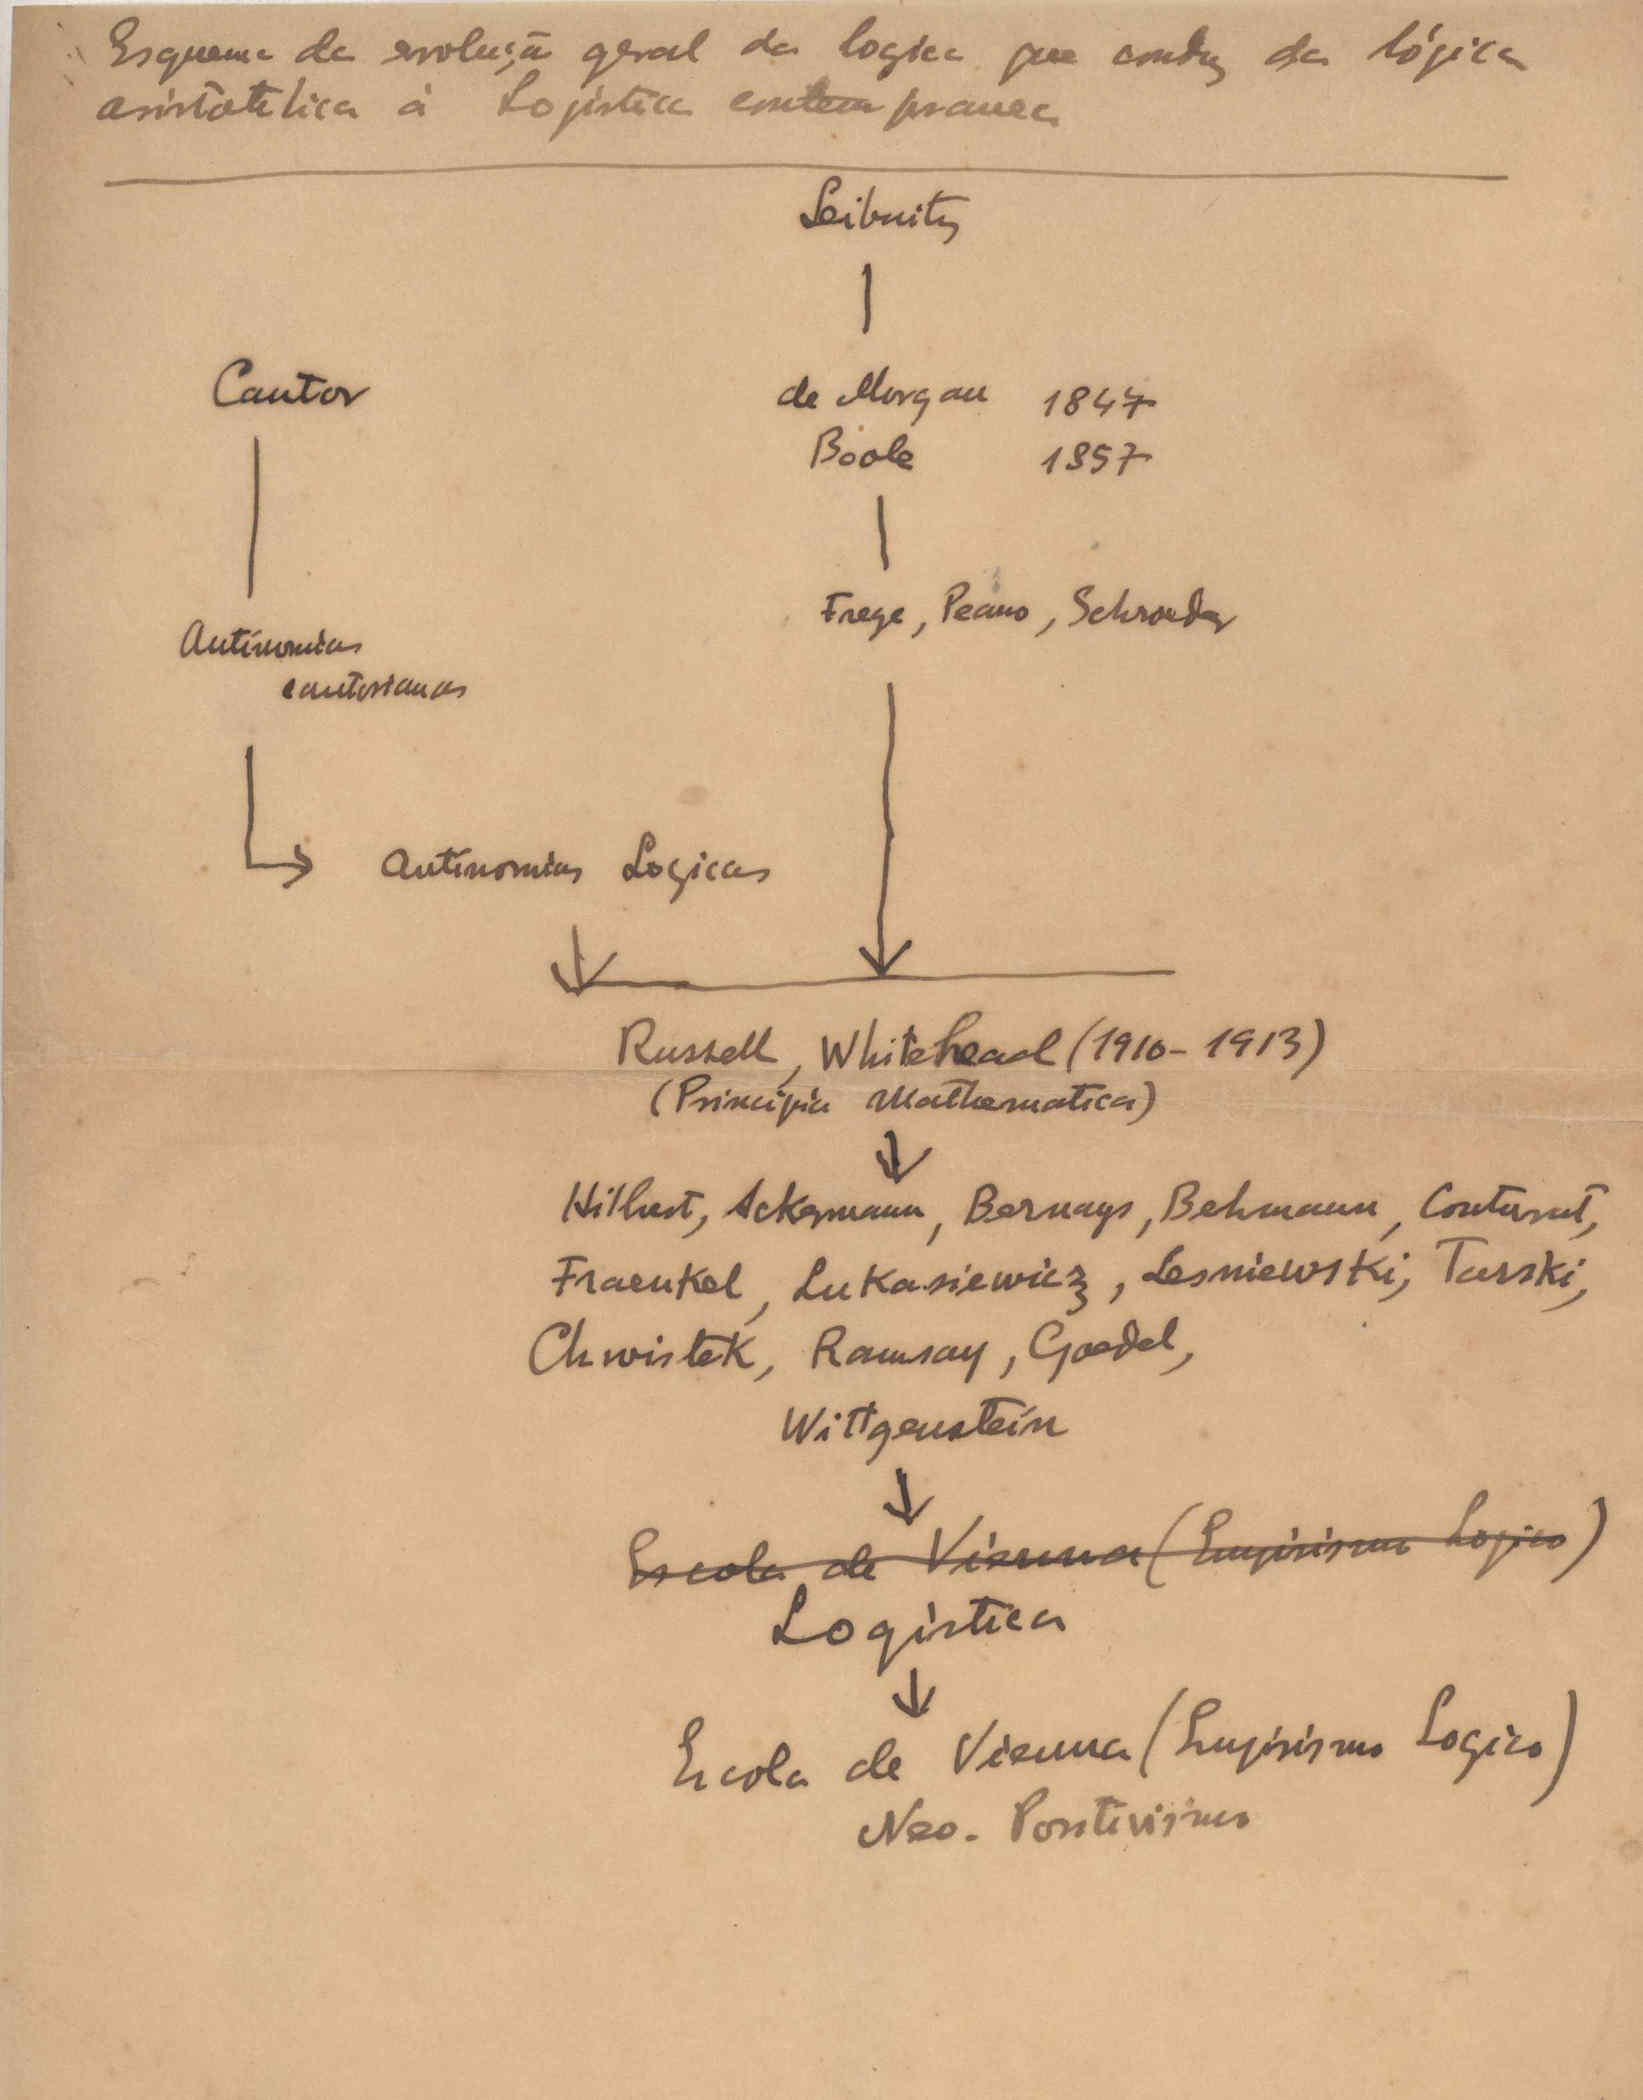 Esquema da evolução geral da logica que conduz da lógica
aristotelica à Logistica contemporanea
Leibnitz
Cantor
de Morgan 1847
Boole 1857
Frege, Peano, Schroeder
Antinomias
cantorianas
Antinomias Logicas
Russell, Whitehead (1910-1913)
(Principia Mathematica)
Hilbert, Ackermann, Bernays, Behmann, Couturat,
Fraenkel, Lukasiewicz, Lesniewski, Tarski,
Chwistek, Ramsay, Goedel,
Wittgenstein
Escola de Vienna (Empirismo Logico)
Logistica
Escola de Vienna (Empirismo Logico)
Neo-Positivismo